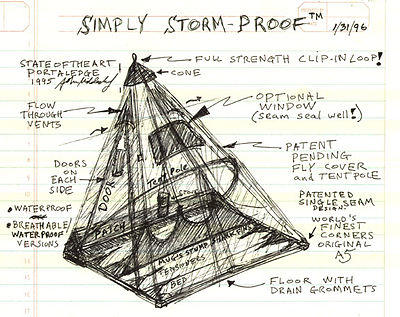 SIMPLY STORM-PROOF™
1/31/96
STATE OF THE ART
PORTALEDGE
1995
FULL STRENGTH CLIP-IN LOOP!
CONE
FLOW
THROUGH
VENTS
OPTIONAL
WINDOW
(seam seal well!)
DOORS
ON
EACH
SIDE
DOOR
TENT POLE
PATENT
PENDING
FLY COVER
and TENT POLE
• WATERPROOF
or
• BREATHABLE
WATERPROOF
VERSIONS
PATENTED
SINGLE SEAM
DESIGN.
WORLD'S
FINEST
CORNERS
ORIGINAL
A5
PATCH
SHARK FINS
TENSIONERS
BED
FLOOR WITH
DRAIN GROMMETS